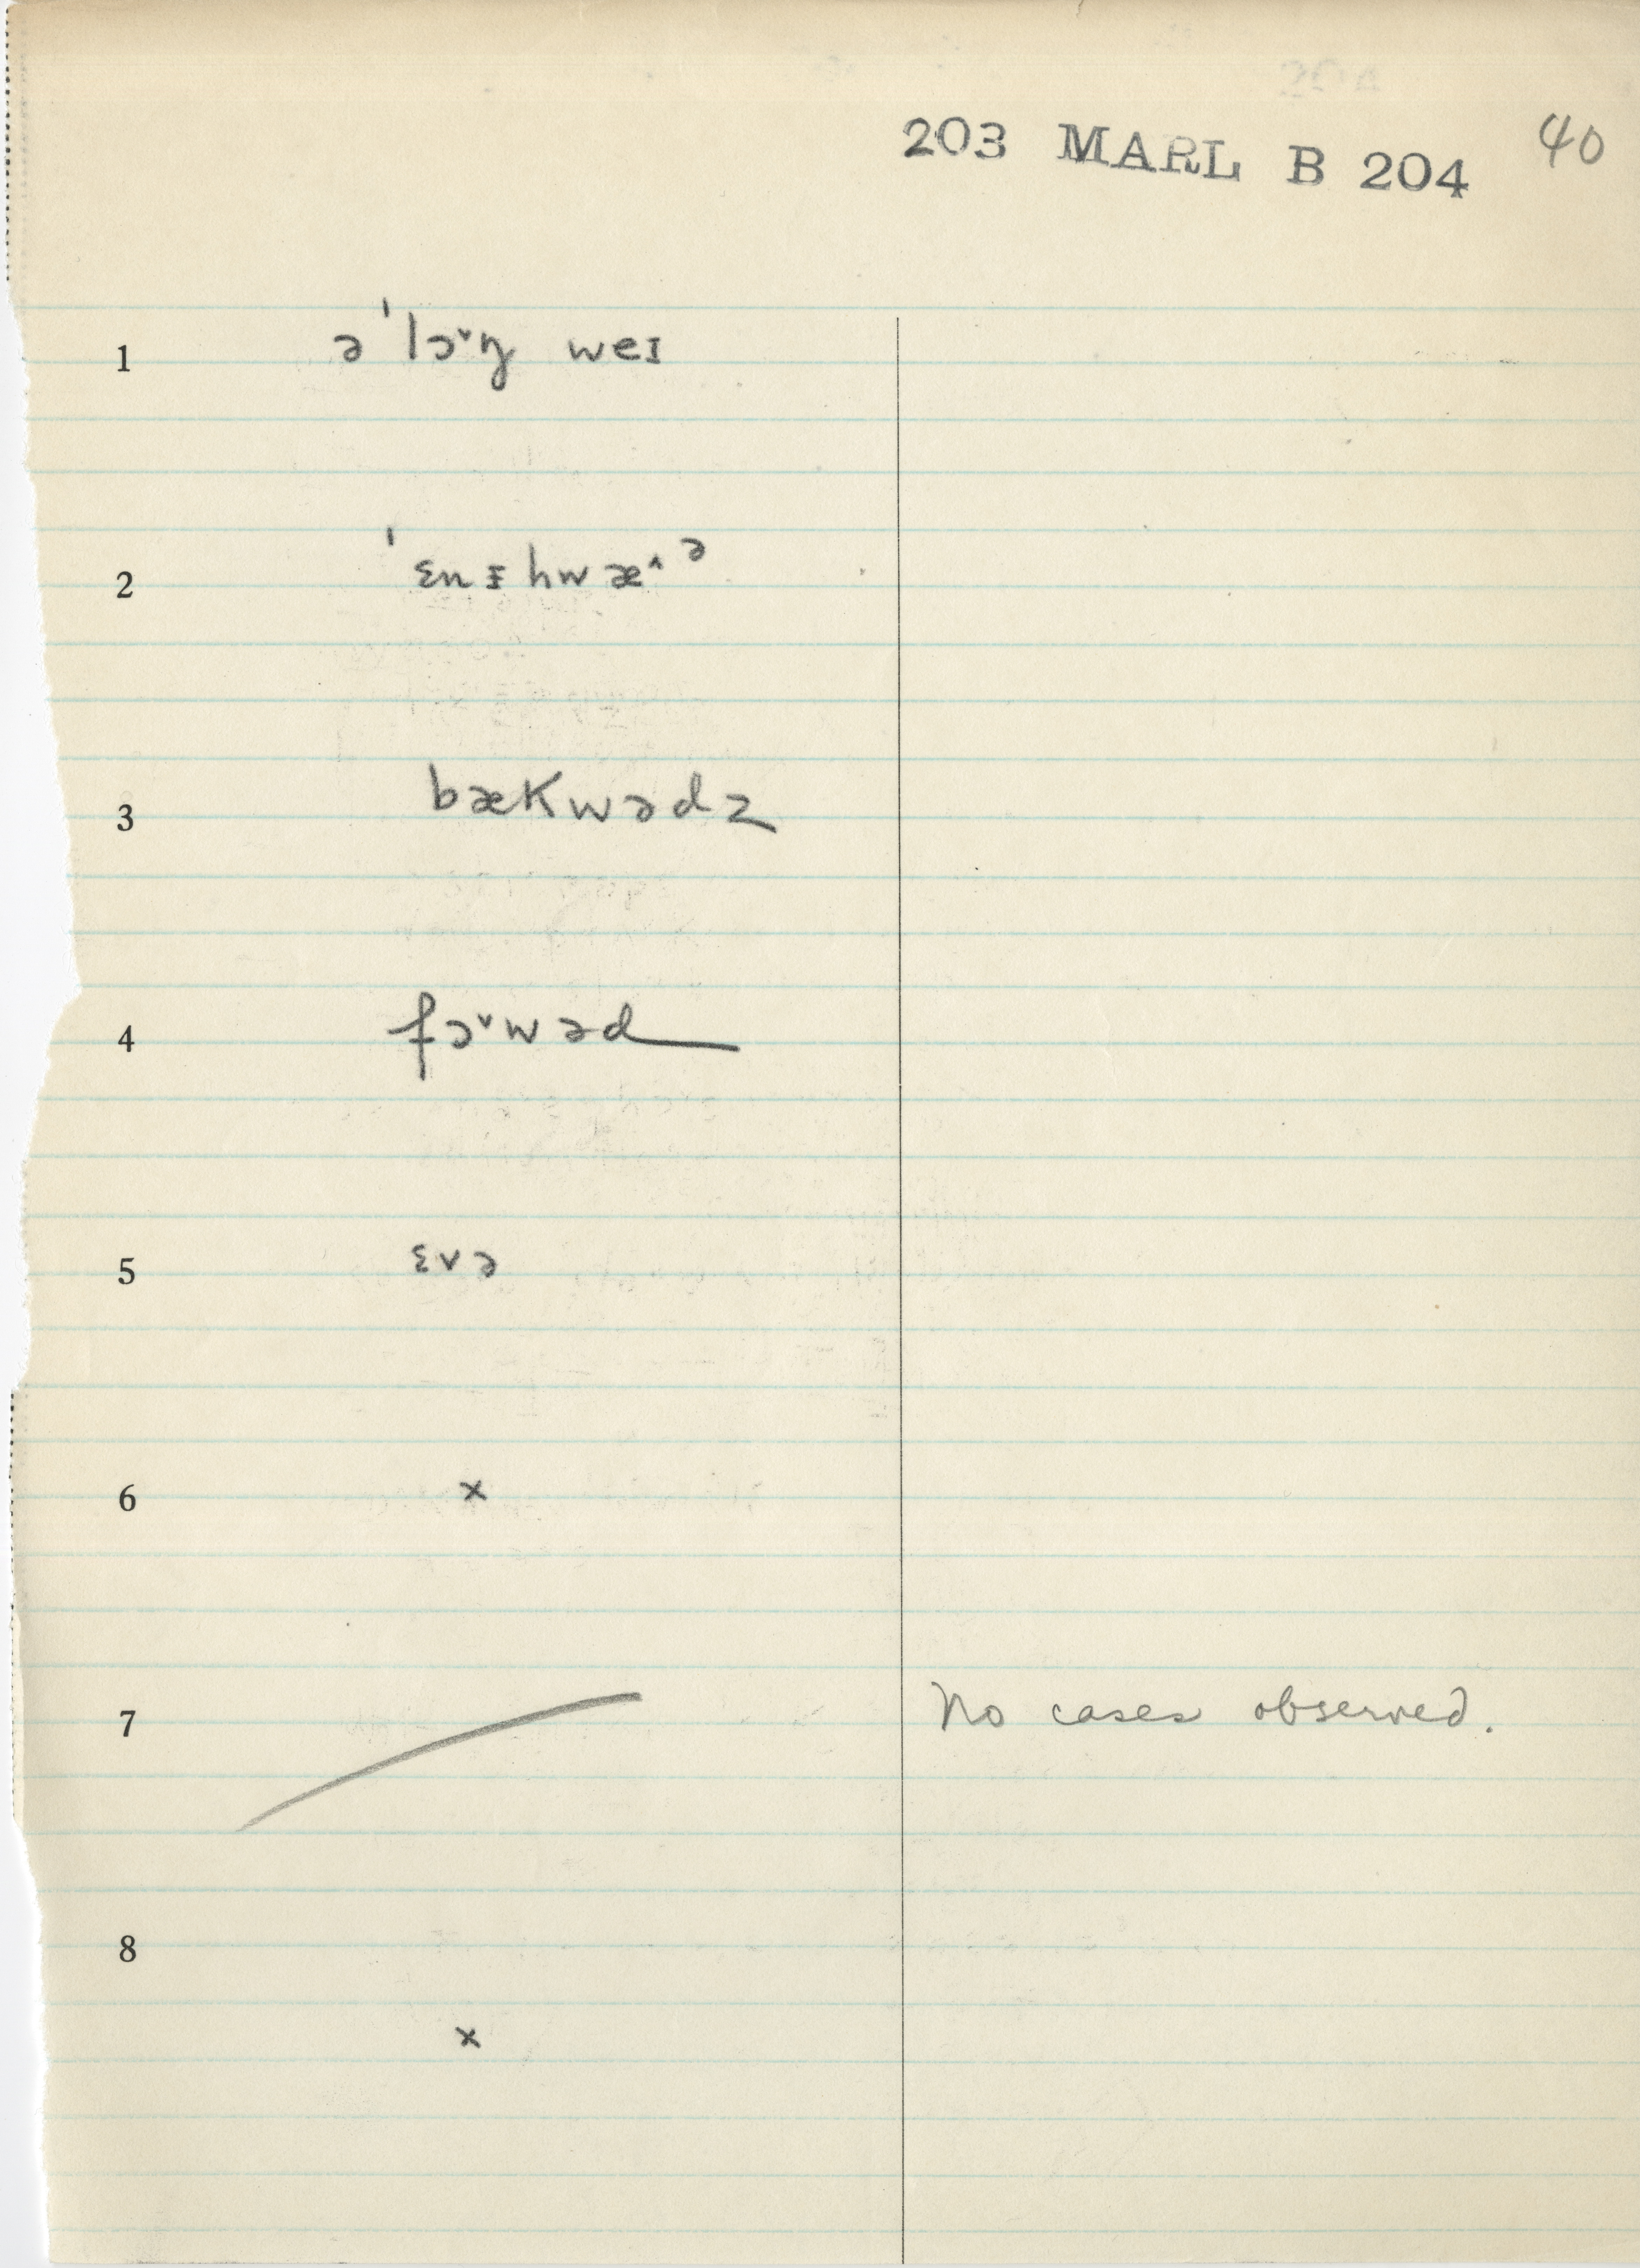 203 MARL B 204 40
1 əˈlɔ˅ŋ weɪ
2 ˈɛnᵻhwæ˄ᵊ
3 bækwədz
4 fɔ˅wəd
5 ɛvə
6 x
7 No cases observed.
8
x